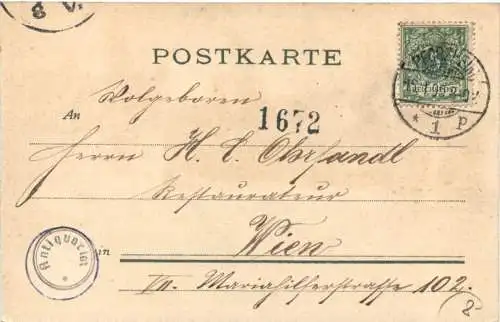 8 V.
POSTKARTE
Wolgeboren
An
1672
Herrn H. C. Ohrfandl
Restaurateur
in Wien
Antiquariat
*
VII. Mariahilferstrasse 102.
* 1 P
2